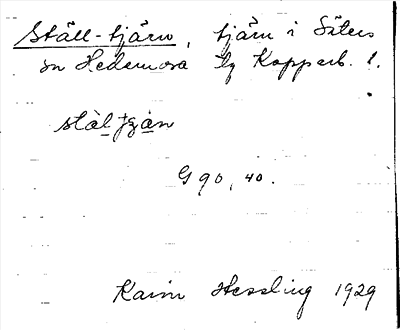 Ställ-tjärn, tjärn i Säters
sn Hedemora tg Kopparb. l.
stàl tjạ̈n
G 90, 40.
Karin Hessling 1929